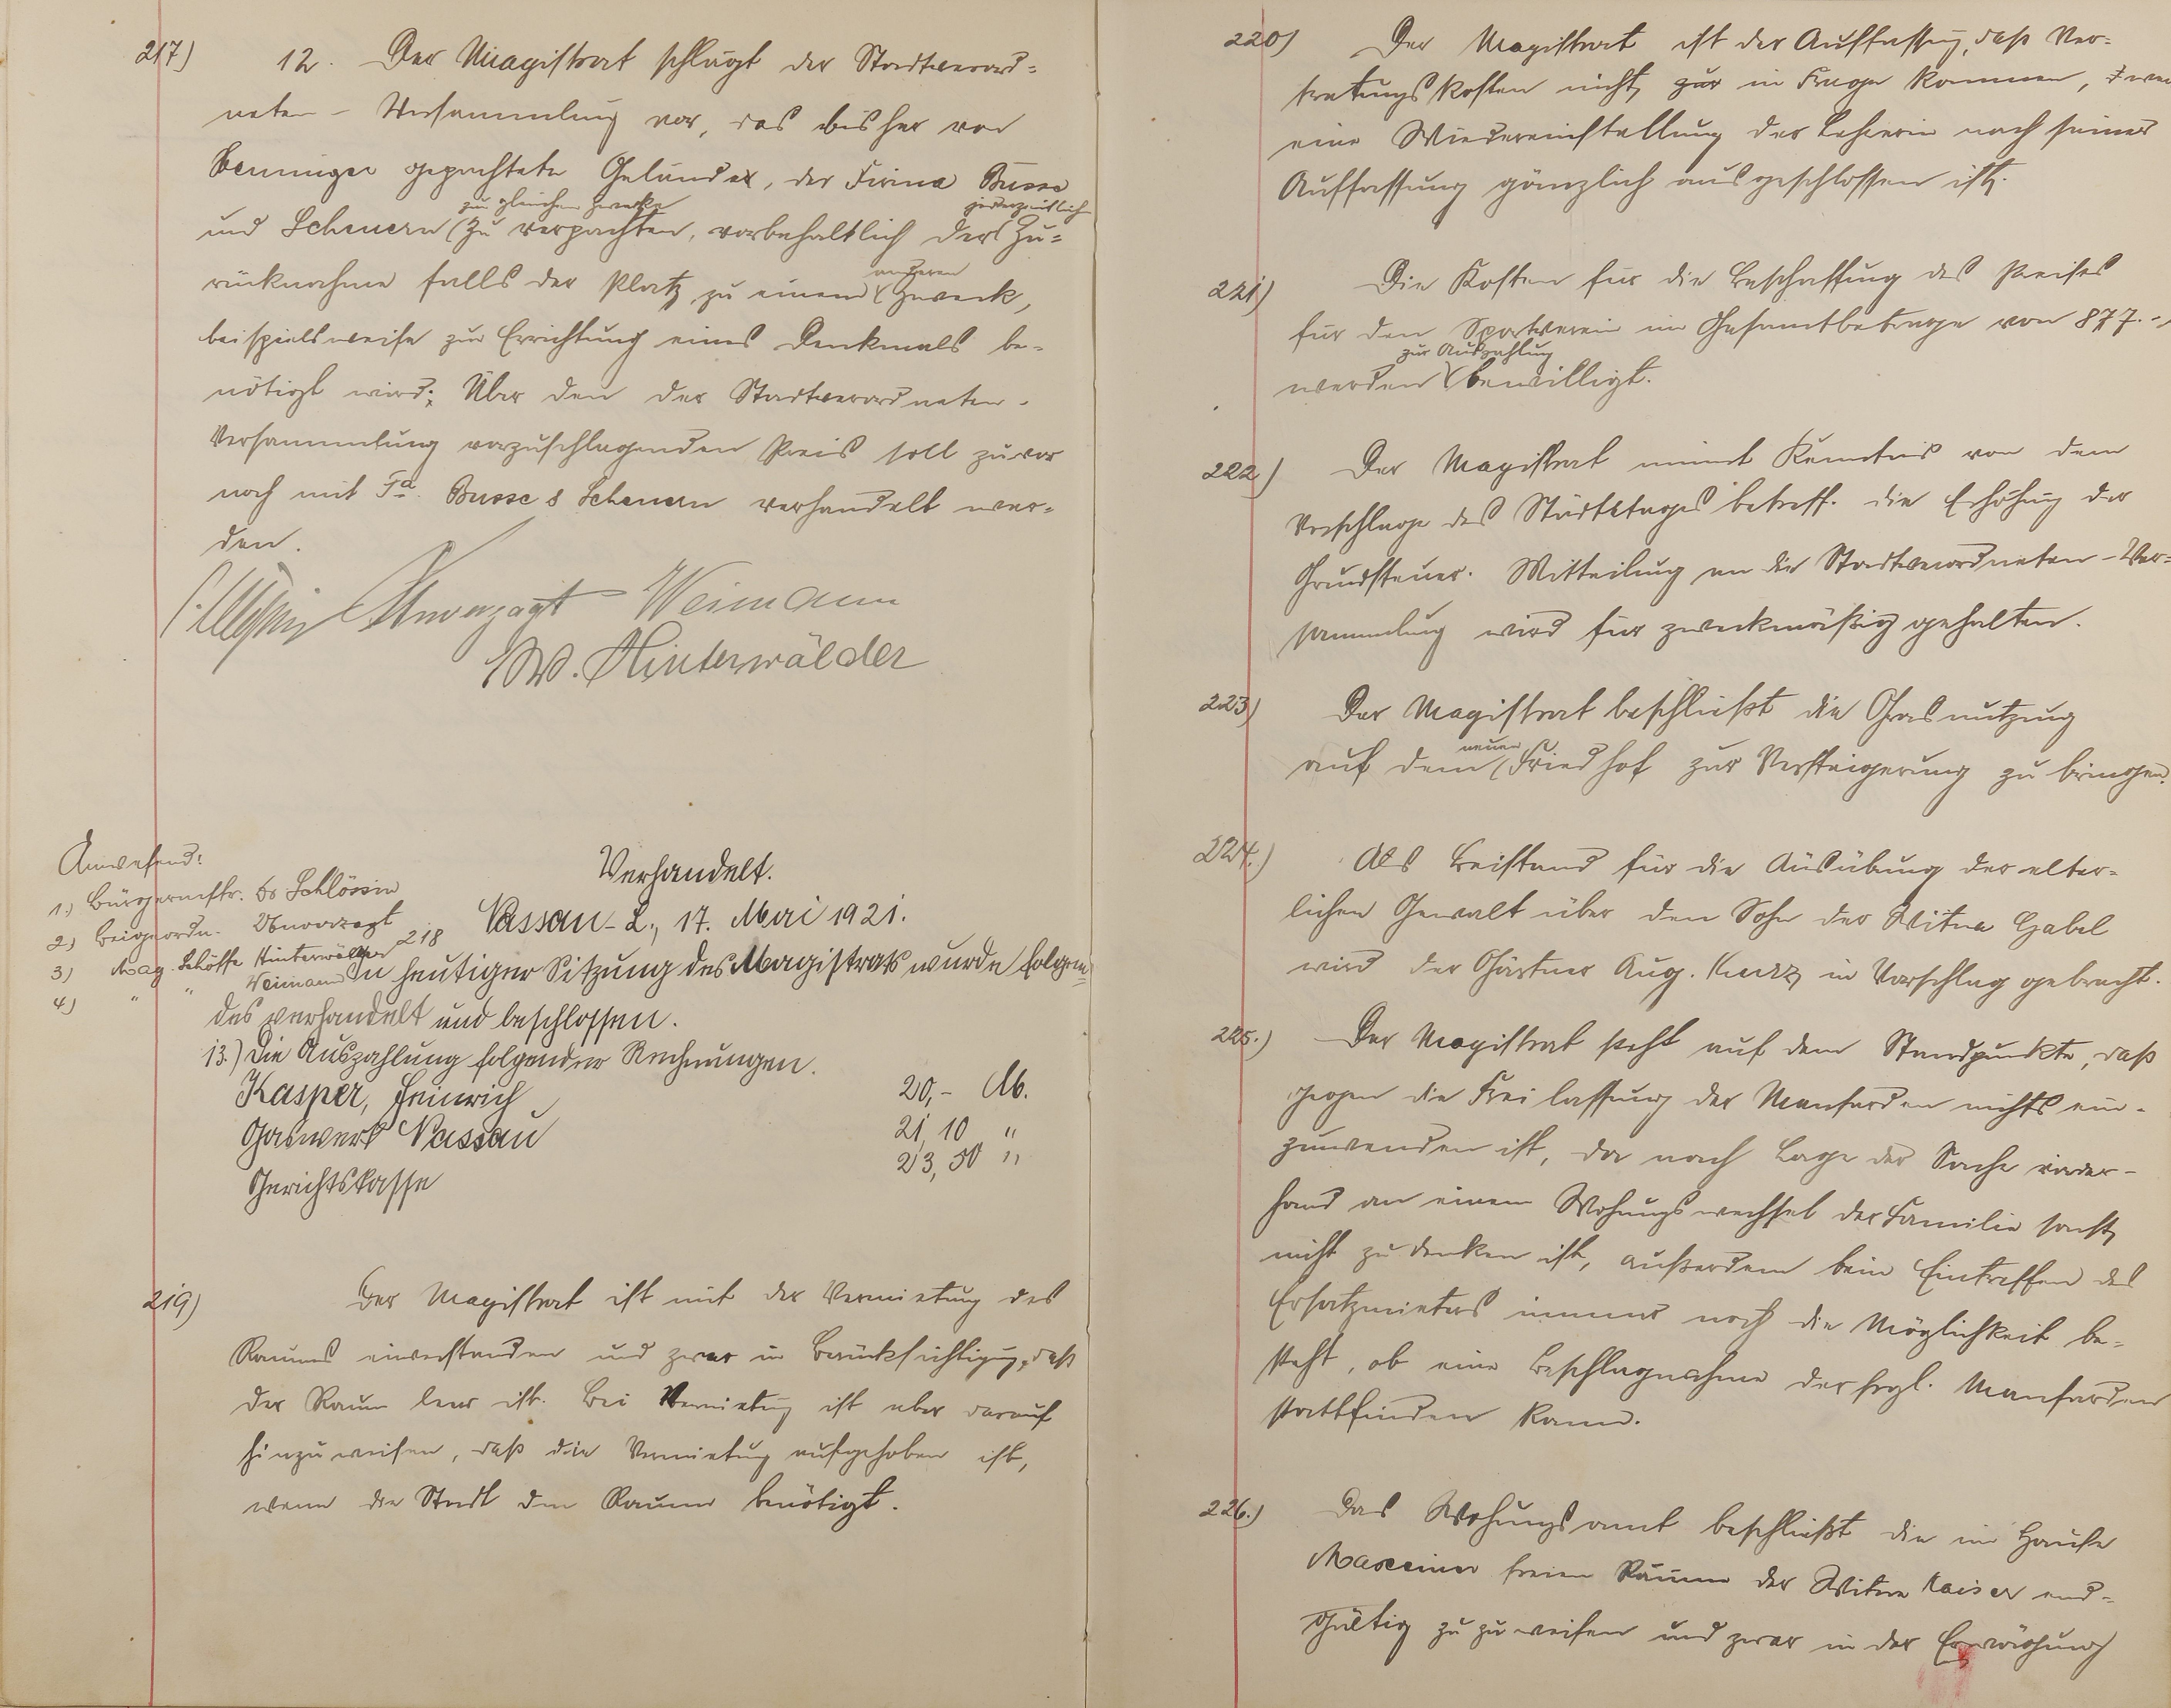 217) 12. Der Magistrat schlägt der Stadtverord=
neten - Versammlung vor, das bisher von
gepachtete Gelände, der Firma Busse
zu gleichem Zwecke jederzeitlich
und Scheuern (zu verpachten, vorbehaltlich der Zu=
anderen
rücknahme falls der Platz zu einem (Zweck,
beispielsweise zur Errichtung eines Denkmals be-
nötigt wird; Über den der Stadtverordneten-
Versammlung vorzuschlagenden Preis soll zuvor
noch mit Fa. Busse & Scheuern verhandelt wer=
den.
Unverzagt Weimann
W. Hinterwälder
Anwesend:
1.) Bürgermstr. Dr Schlössin
2) Beigeordn. Unverzagt
3) Mag. Schöffe Hinterwälder
4) " " Weimann
Verhandelt.
Nassau-L., 17. Mai 1921.
218 In heutiger Sitzung des Magistrats wurde folgen=
des verhandelt und beschlossen.
13.) Die Auszahlung folgender Rechnungen.
Kasper, Heinrich 20,- M.
Gaswerk Nassau 21,10 "
Gerichtskasse 23,50 "
219) Der Magistrat ist mit der Vermietung des
Raumes einverstanden und zwar in Berücksichtigung, daß
der Raum leer ist. Bei Vermietung ist aber darauf
hinzuweisen, daß die Vermietung aufgehoben ist,
wenn die Stadt den Raum benötigt.
220) Der Magistrat ist der Auffassung, daß Ver-
tretungskosten nicht gar in Frage kommen,
eine Wiedereinstellung der Lehrerin nach seiner
Auffassung gänzlich ausgeschlossen ist.
221) Die Kosten für die Beschaffung des Preises
für den Sportverein im Gesamtbetrage von 877.-
zur Auszahlung
werden (bewilligt.
222) Der Magistrat nimmt Kenntnis von dem
Vorschlage des Städtetages betreff. die Erhöhung der
Grundsteuer. Mitteilung an die Stadtverordneten-Ver=
sammlung wird für zweckmäßig gehalten.
223) Der Magistrat beschließt die Grasnutzung
neuen
auf dem (Friedhof zur Versteigerung zu bringen.
224.) Als Beistand für die Ausübung der elter-
lichen Gewalt über den Sohn der Witwe Gabel
wird der Gärtner Aug. Kurz in Vorschlag gebracht.
225.) Der Magistrat steht auf dem Standpunkte, daß
gegen die Freilassung der Mansarden nichts ein-
zuwenden ist, da nach Lage der Sache
hand an einem Wohungswechsel der Familie sonst
nicht zu denken ist, außerdem beim Eintreffen des
Ersatzmieters immer noch die Möglichkeit be-
steht, ob eine Beschlagnahme der frgl. Mansarden
stattfinden kann.
226.) Das Wohungsamt beschließt die im Hause
freien Räume der Witwe Kaiser end-
gültig zu zu weisen und zwar in der Erwägung